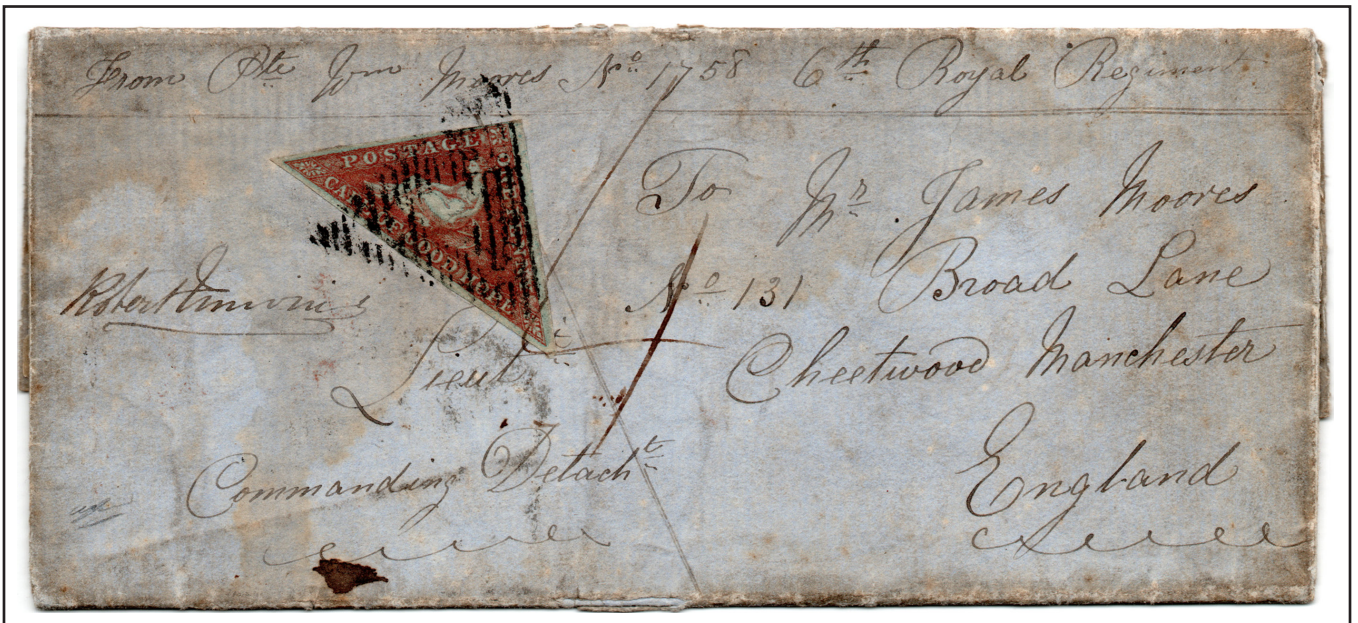 From Pte Wm Moores No. 1758 6th Royal Regiment
POSTAGE
CAPE OF GOOD HOPE
To Mr. James Moores
No 131 Broad Lane
Cheetwood Manchester
England
Robert
Lieut
Commanding Detacht
1